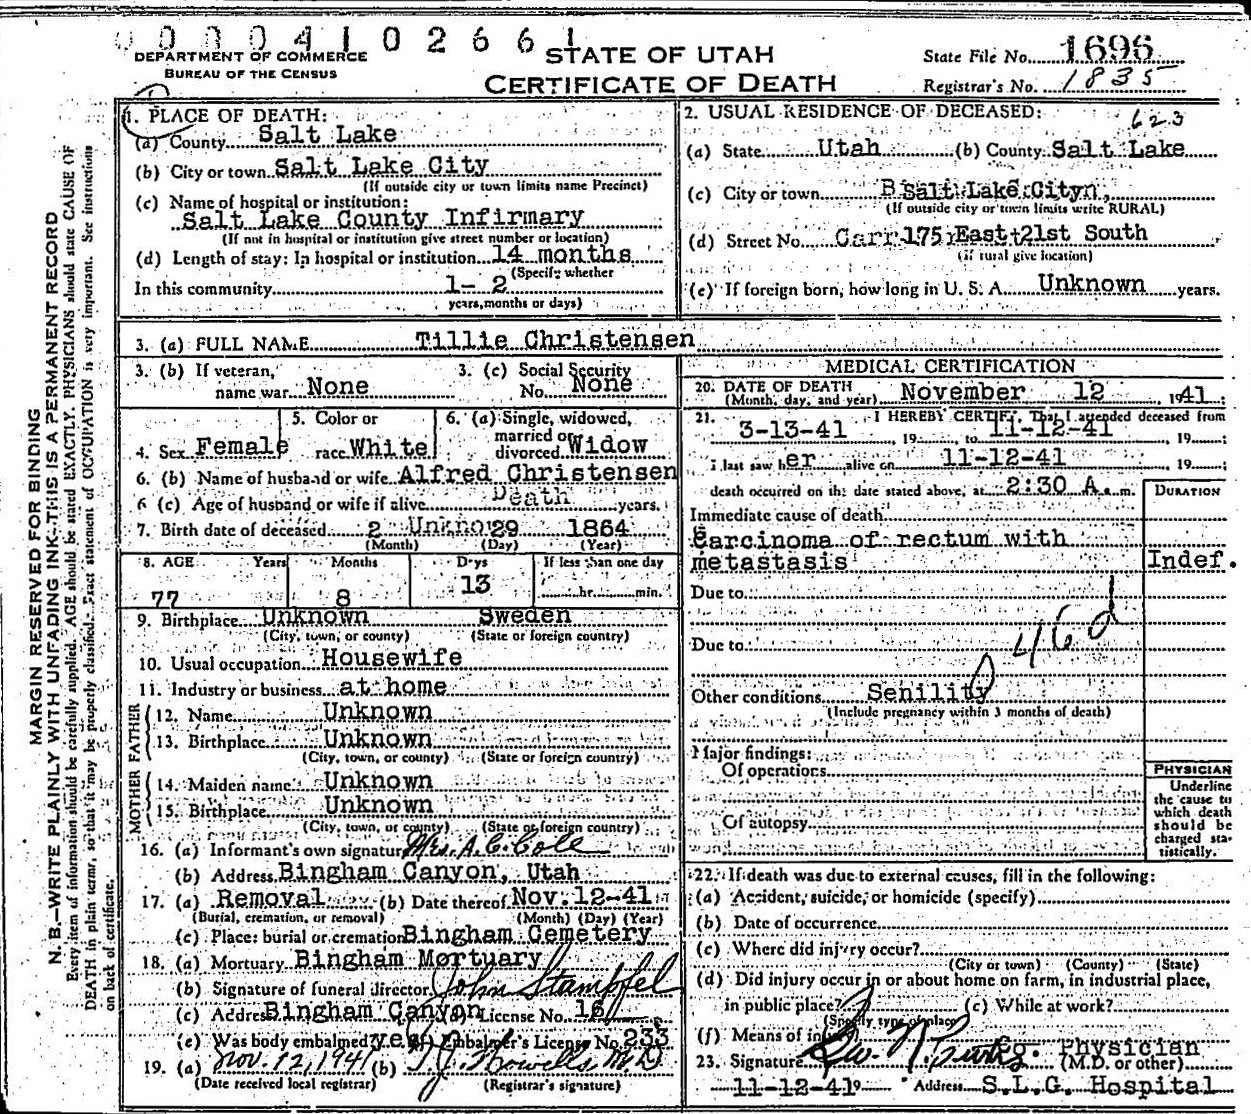 0 0 0 0 4 1 0 2 6 6 1
DEPARTMENT OF COMMERCE
BUREAU OF THE CENSUS
STATE OF UTAH
CERTIFICATE OF DEATH
State File No. 1696
Registrar's No. 1835
MARGIN RESERVED FOR BINDING
N. B.—WRITE PLAINLY WITH UNFADING INK—THIS IS A PERMANENT RECORD
Every item of information should be carefully supplied. AGE should be stated EXACTLY. PHYSICIANS should state CAUSE OF
DEATH in plain terms, so that it may be properly classified. Exact statement of OCCUPATION is very important. See instructions
on back of certificate.
1. PLACE OF DEATH:
(a) County Salt Lake
(b) City or town Salt Lake City
(If outside city or town limits name Precinct)
(c) Name of hospital or institution:
Salt Lake County Infirmary
(If not in hospital or institution give street number or location)
(d) Length of stay: In hospital or institution 14 months
(Specify whether
In this community 1- 2
years, months or days)
2. USUAL RESIDENCE OF DECEASED:
623
(a) State Utah (b) County Salt Lake
(c) City or town Salt Lake City
(If outside city or town limits write RURAL)
(d) Street No. 175 East 21st South
(if rural give location)
(e) If foreign born, how long in U. S. A. Unknown years.
3. (a) FULL NAME Tillie Christensen
3. (b) If veteran, name war None
3. (c) Social Security No. None
4. Sex Female
5. Color or race White
6. (a) Single, widowed, married or divorced Widow
6. (b) Name of husband or wife Alfred Christensen
6 (c) Age of husband or wife if alive Death years.
7. Birth date of deceased 2 Unknown 29 1864
(Month) (Day) (Year)
8. AGE Years Months Days If less than one day
77 8 13 hr. min.
9. Birthplace Unknown Sweden
(City, town, or county) (State or foreign country)
10. Usual occupation Housewife
11. Industry or business at home
FATHER
12. Name Unknown
13. Birthplace Unknown
(City, town, or county) (State or foreign country)
MOTHER
14. Maiden name Unknown
15. Birthplace Unknown
(City, town, or county) (State or foreign country)
16. (a) Informant's own signature Mrs. A. C. Cole
(b) Address Bingham Canyon, Utah
17. (a) Removal (b) Date thereof Nov. 12-41
(Burial, cremation, or removal) (Month) (Day) (Year)
(c) Place: burial or cremation Bingham Cemetery
18. (a) Mortuary Bingham Mortuary
(b) Signature of funeral director John Stampfel
(c) Address Bingham Canyon (d) License No. 16
(e) Was body embalmed? yes (f) Embalmer's License No. 233
19. (a) Nov. 12, 1941 (b) T. J. Howells M. D
(Date received local registrar) (Registrar's signature)
MEDICAL CERTIFICATION
20. DATE OF DEATH
(Month, day, and year) November 12 , 1941
21. I HEREBY CERTIFY, That I attended deceased from
3-13-41 , 19 to 11-12-41 , 19 ;
I last saw her alive on 11-12-41 , 19 ;
death occurred on the date stated above, at 2:30 A. m.
DURATION
Immediate cause of death
Carcinoma of rectum with
metastasis Indef.
Due to
46d
Due to
Other conditions Senility
(Include pregnancy within 3 months of death)
Major findings:
Of operations
Of autopsy
PHYSICIAN
Underline
the cause to
which death
should be
charged sta-
tistically.
22. If death was due to external causes, fill in the following:
(a) Accident, suicide, or homicide (specify)
(b) Date of occurrence
(c) Where did injury occur?
(City or town) (County) (State)
(d) Did injury occur in or about home on farm, in industrial place,
in public place? (e) While at work?
(Specify type of place)
(f) Means of injury
23. Signature Geo. N. Curtis Co. Physician
(M.D. or other)
11-12-41 19 Address S.L.G. Hospital